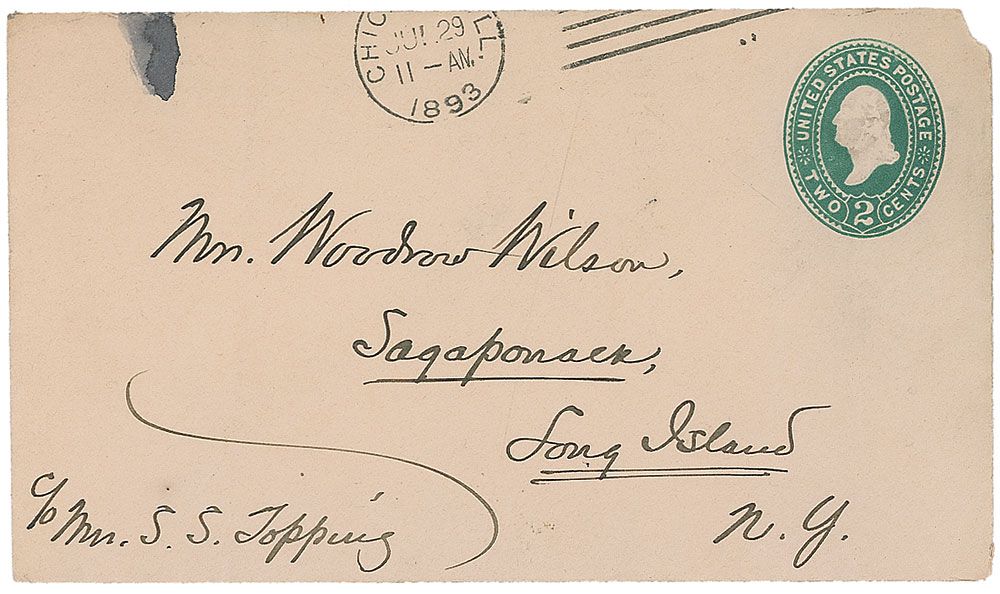 CHIC ILL
JUL 29
11 - AM.
1893
UNITED STATES POSTAGE
TWO 2 CENTS
Mr. Woodrow Wilson,
Sagaponack,
Long Island
N. Y.
c/o Mr. S. S. Topping